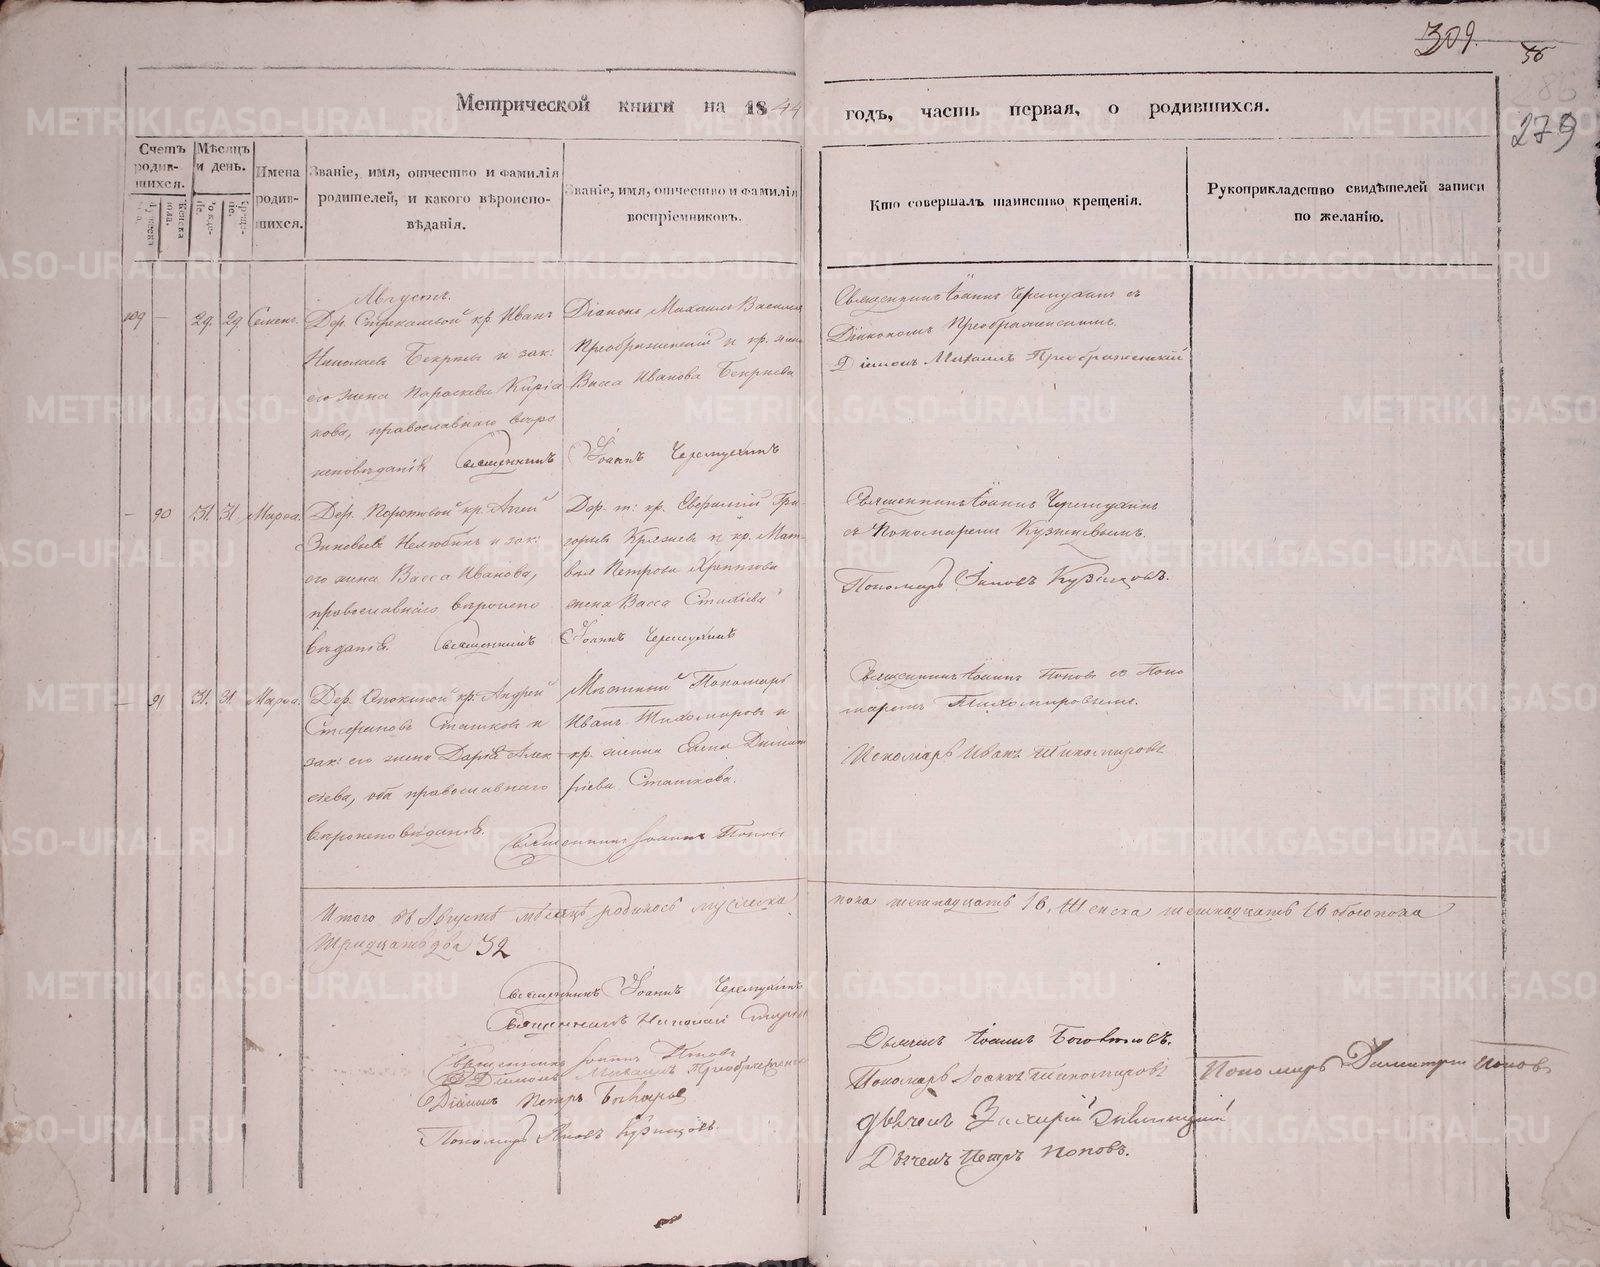 309.
56
286
279
Метрической книги на 1844 годъ, часть первая, о родившихся.
Счетъ родив-шихся.
Мѣсяцъ и день.
Имена родив-шихся.
Званіе, имя, отчество и фамилія родителей, и какого вѣроиспо-вѣданія.
Званіе, имя, отчество и фамилія воспріемниковъ.
Кто совершалъ таинство крещенія.
Рукоприкладство свидѣтелей записи по желанію.
Августъ.
109 — 29 29 Семенъ.
Дер. кр. Иванъ
Николаевъ и зак:
его жена Параскева Киріа
кова, православнаго вѣро
исповѣданія. Священникъ Іоаннъ Черемухинъ
Діаконъ Михаилъ Васильевъ
Преображенскій и кр. жена
Васса Иванова
Священникъ Іоаннъ Черемухинъ съ
Діакономъ Преображенскимъ.
Діаконъ Михаилъ Преображенскій
— 90 31. 31. Марѳа.
Дер. кр. Агей
Зиновьевъ Нелюбинъ и зак:
его жена Васса Иванова,
православнаго вѣроиспо
вѣданія. Священникъ Іоаннъ Черемухинъ
Дер. т: кр. Гри-
горьевъ и кр. Мат-
вея Петрова
жена Васса
Священникъ Іоаннъ Черемухинъ
съ Пономаремъ Кузнецовымъ.
Пономарь Іаковъ Кузнецовъ.
— 91 31. 31. Марѳа.
Дер. кр. Андрей
Стефановъ Сташковъ и
зак: его жена Дарія Алек
сѣева, оба православнаго
вѣроисповѣданія.
Мѣстный Пономарь
Иванъ Тихомировъ и
кр. жена Елена Димит
ріева Сташкова.
Священникъ Іоаннъ Поповъ
Священникъ Іоаннъ Поповъ съ Поно
маремъ Тихомировымъ.
Пономарь Иванъ Тихомировъ
Итого въ Августѣ мѣсяцѣ родилось мужеска пола шестнадцать 16, Женска шестнадцать 16 обоего пола
Тридцать два 32
Священникъ Іоаннъ Черемухинъ
Священникъ Николай
Священникъ Іоаннъ Поповъ
Діаконъ Михаилъ Преображенскій
Діаконъ Петръ
Пономарь Яковъ Кузнецовъ.
Дьячекъ Іоаннъ
Пономарь Іоаннъ Тихомировъ
Пономарь Димитрій Поповъ
Дьячекъ Захарій
Дьячекъ Петръ Поповъ.
METRIKI.GASO-URAL.RU